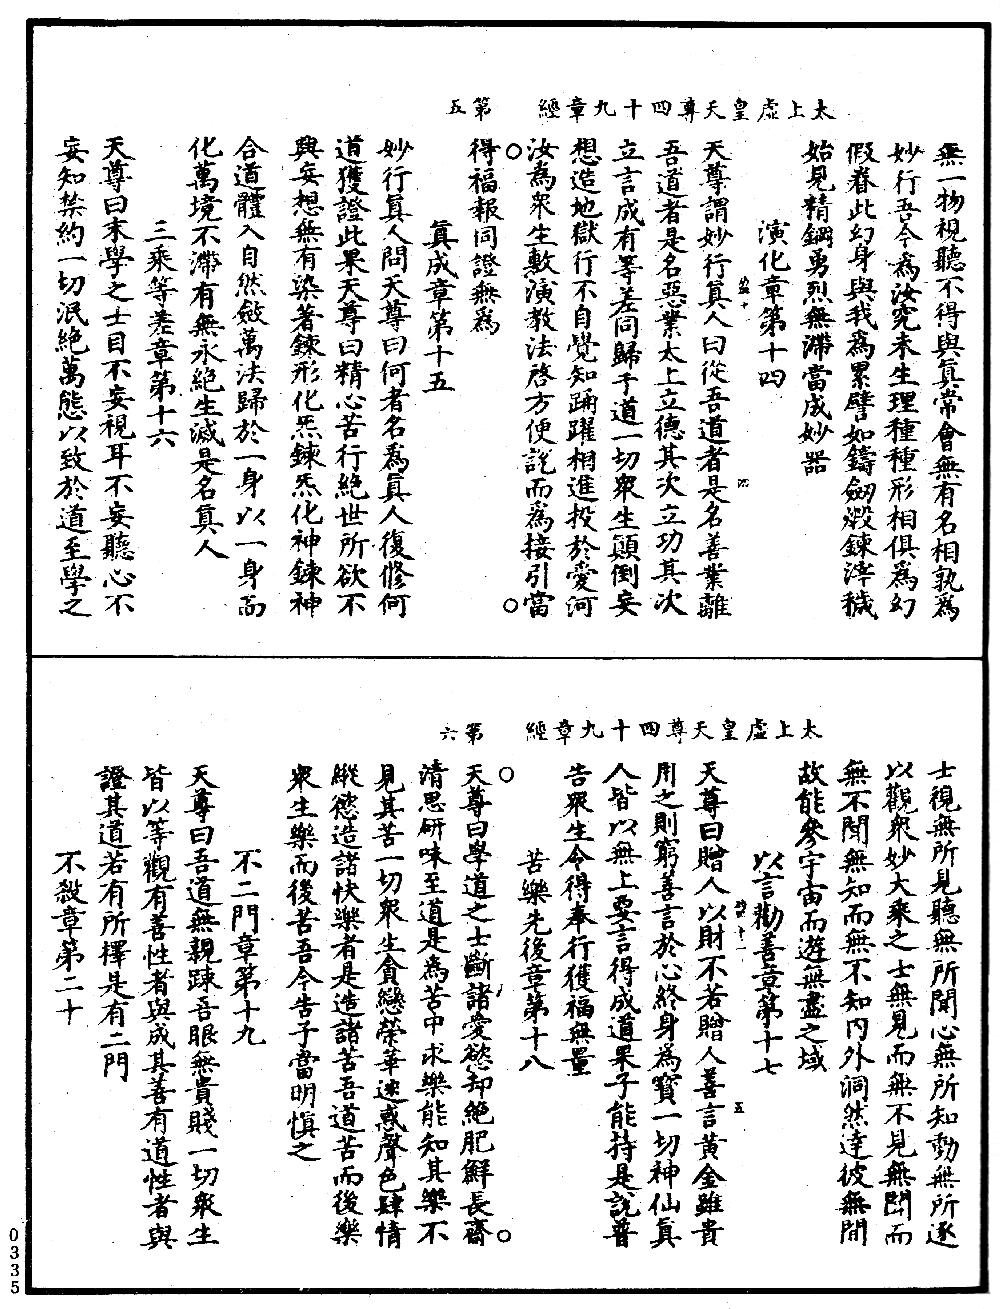 太上虛皇天尊四十九章經　第五
無一物視聽不得與眞常會無有名相孰爲
妙行吾今爲汝究未生理種種形相俱爲幻
假眷此幻身與我爲累譬如鑄劒煅鍊滓穢
始見精鋼勇烈無滯當成妙器
演化章第十四
天尊謂妙行眞人曰從吾道者是名善業離
吾道者是名惡業太上立德其次立功其次
立言成有等差同歸于道一切衆生顛倒妄
想造地獄行不自覺知踊躍相進投於愛河
汝爲衆生敷演教法啓方便說而爲接引當
得福報同證無爲
眞成章第十五
妙行眞人問天尊曰何者名爲眞人復修何
道獲證此果天尊曰精心苦行絶世所欲不
興妄想無有染著鍊形化炁鍊炁化神鍊神
合道體入自然斂萬法歸於一身以一身而
化萬境不滯有無永絶生滅是名眞人
三乘等差章第十六
天尊曰末學之士目不妄視耳不妄聽心不
妄知禁約一切泯絶萬態以致於道至學之
太上虛皇天尊四十九章經　第六
士視無所見聽無所聞心無所知動無所逐
以觀衆妙大乘之士無見而無不見無聞而
無不聞無知而無不知內外洞然達彼無間
故能參宇宙而遊無盡之域
以言勸善章第十七
天尊曰贈人以財不若贈人善言黃金雖貴
用之則窮善言於心終身爲寶一切神仙眞
人皆以無上要言得成道果子能持是說普
告衆生令得奉行獲福無量
苦樂先後章第十八
天尊曰學道之士斷諸愛慾却絶肥鮮長齋
清思研味至道是爲苦中求樂能知其樂不
見其苦一切衆生貪戀榮華迷惑聲色肆情
縱慾造諸快樂者是造諸苦吾道苦而後樂
衆生樂而後苦吾今告子當明愼之
不二門章第十九
天尊曰吾道無親踈吾眼無貴賤一切衆生
皆以等觀有善性者與成其善有道性者與
證其道若有所擇是有二門
不殺章第二十
0335